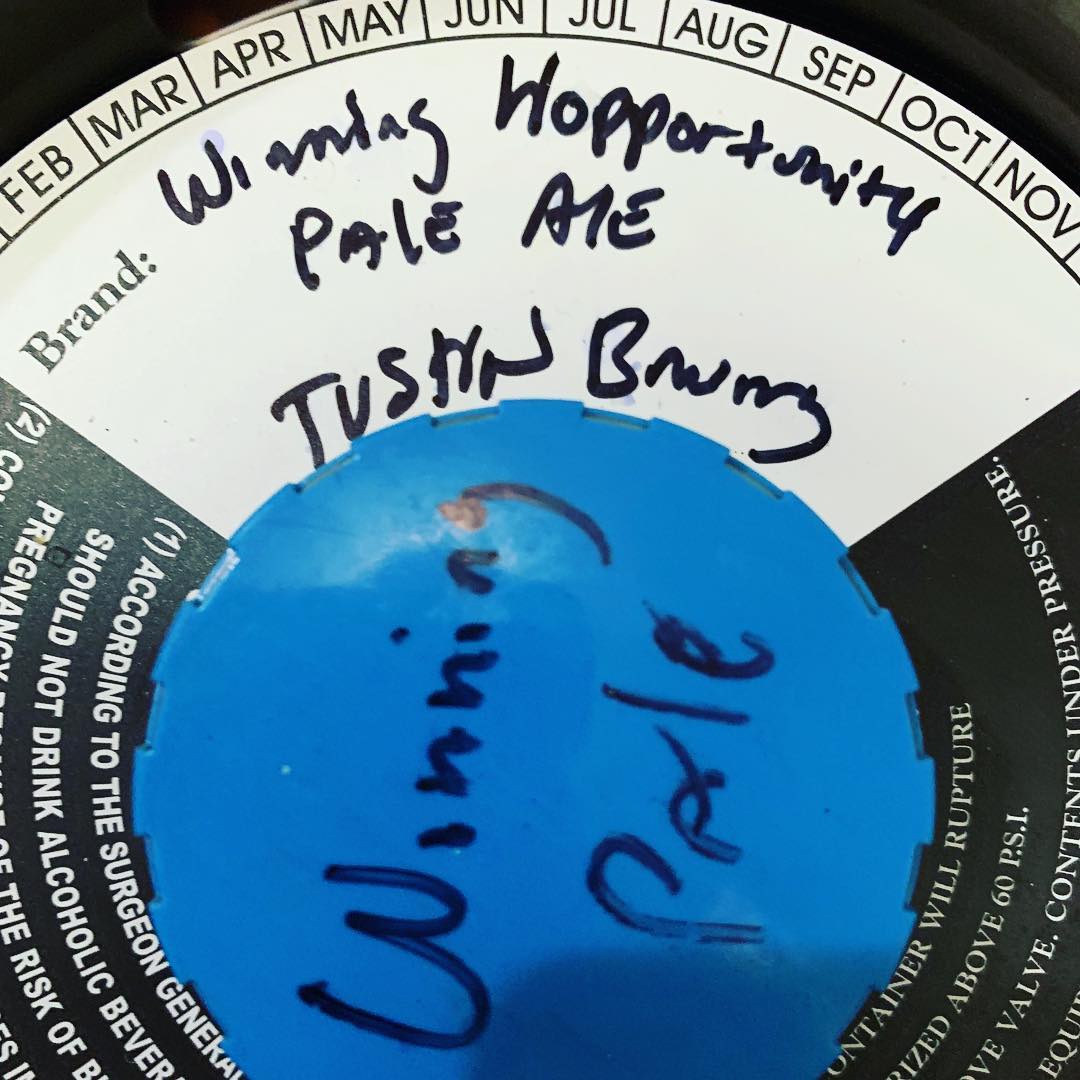 FEB MAR APR MAY JUN JUL AUG SEP OCT NOV
Brand: Winning Hopportunity
PALE AlE
TUSTIN Brewing
Winning
Pale
(1) ACCORDING TO THE SURGEON GENERAL
SHOULD NOT DRINK ALCOHOLIC
PREGNANCY OF THE RISK OF
(2)
PRESSURE.
CONTAINER WILL RUPTURE
ABOVE 60 P.S.I.
VALVE. CONTENTS UNDER